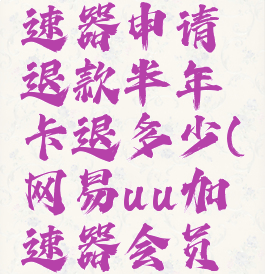 速器申请
退款半年
卡退多少(
网易uu加
速器会员